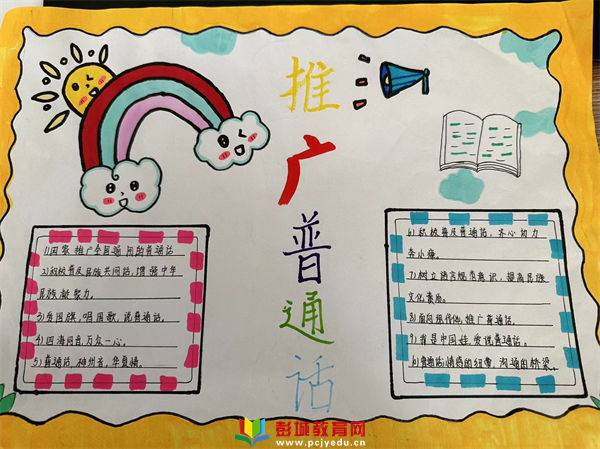 推广普通话
1)国家推广全国通用的普通话
2)积极普及民族共同语,增强中华
民族凝聚力。
3)爱国旗,唱国歌,说普通话。
4)四海同音,万众一心。
5)普通话,神州音,华夏情。
6)积极普及普通话,齐心协力
奔小康。
7)树立语言规范意识,提高民族
文化素质。
8)面向现代化,推广普通话。
9)我是中国娃,爱说普通话。
普通话:情感的纽带,沟通的桥梁。
彭城教育网
www.pcjyedu.cn